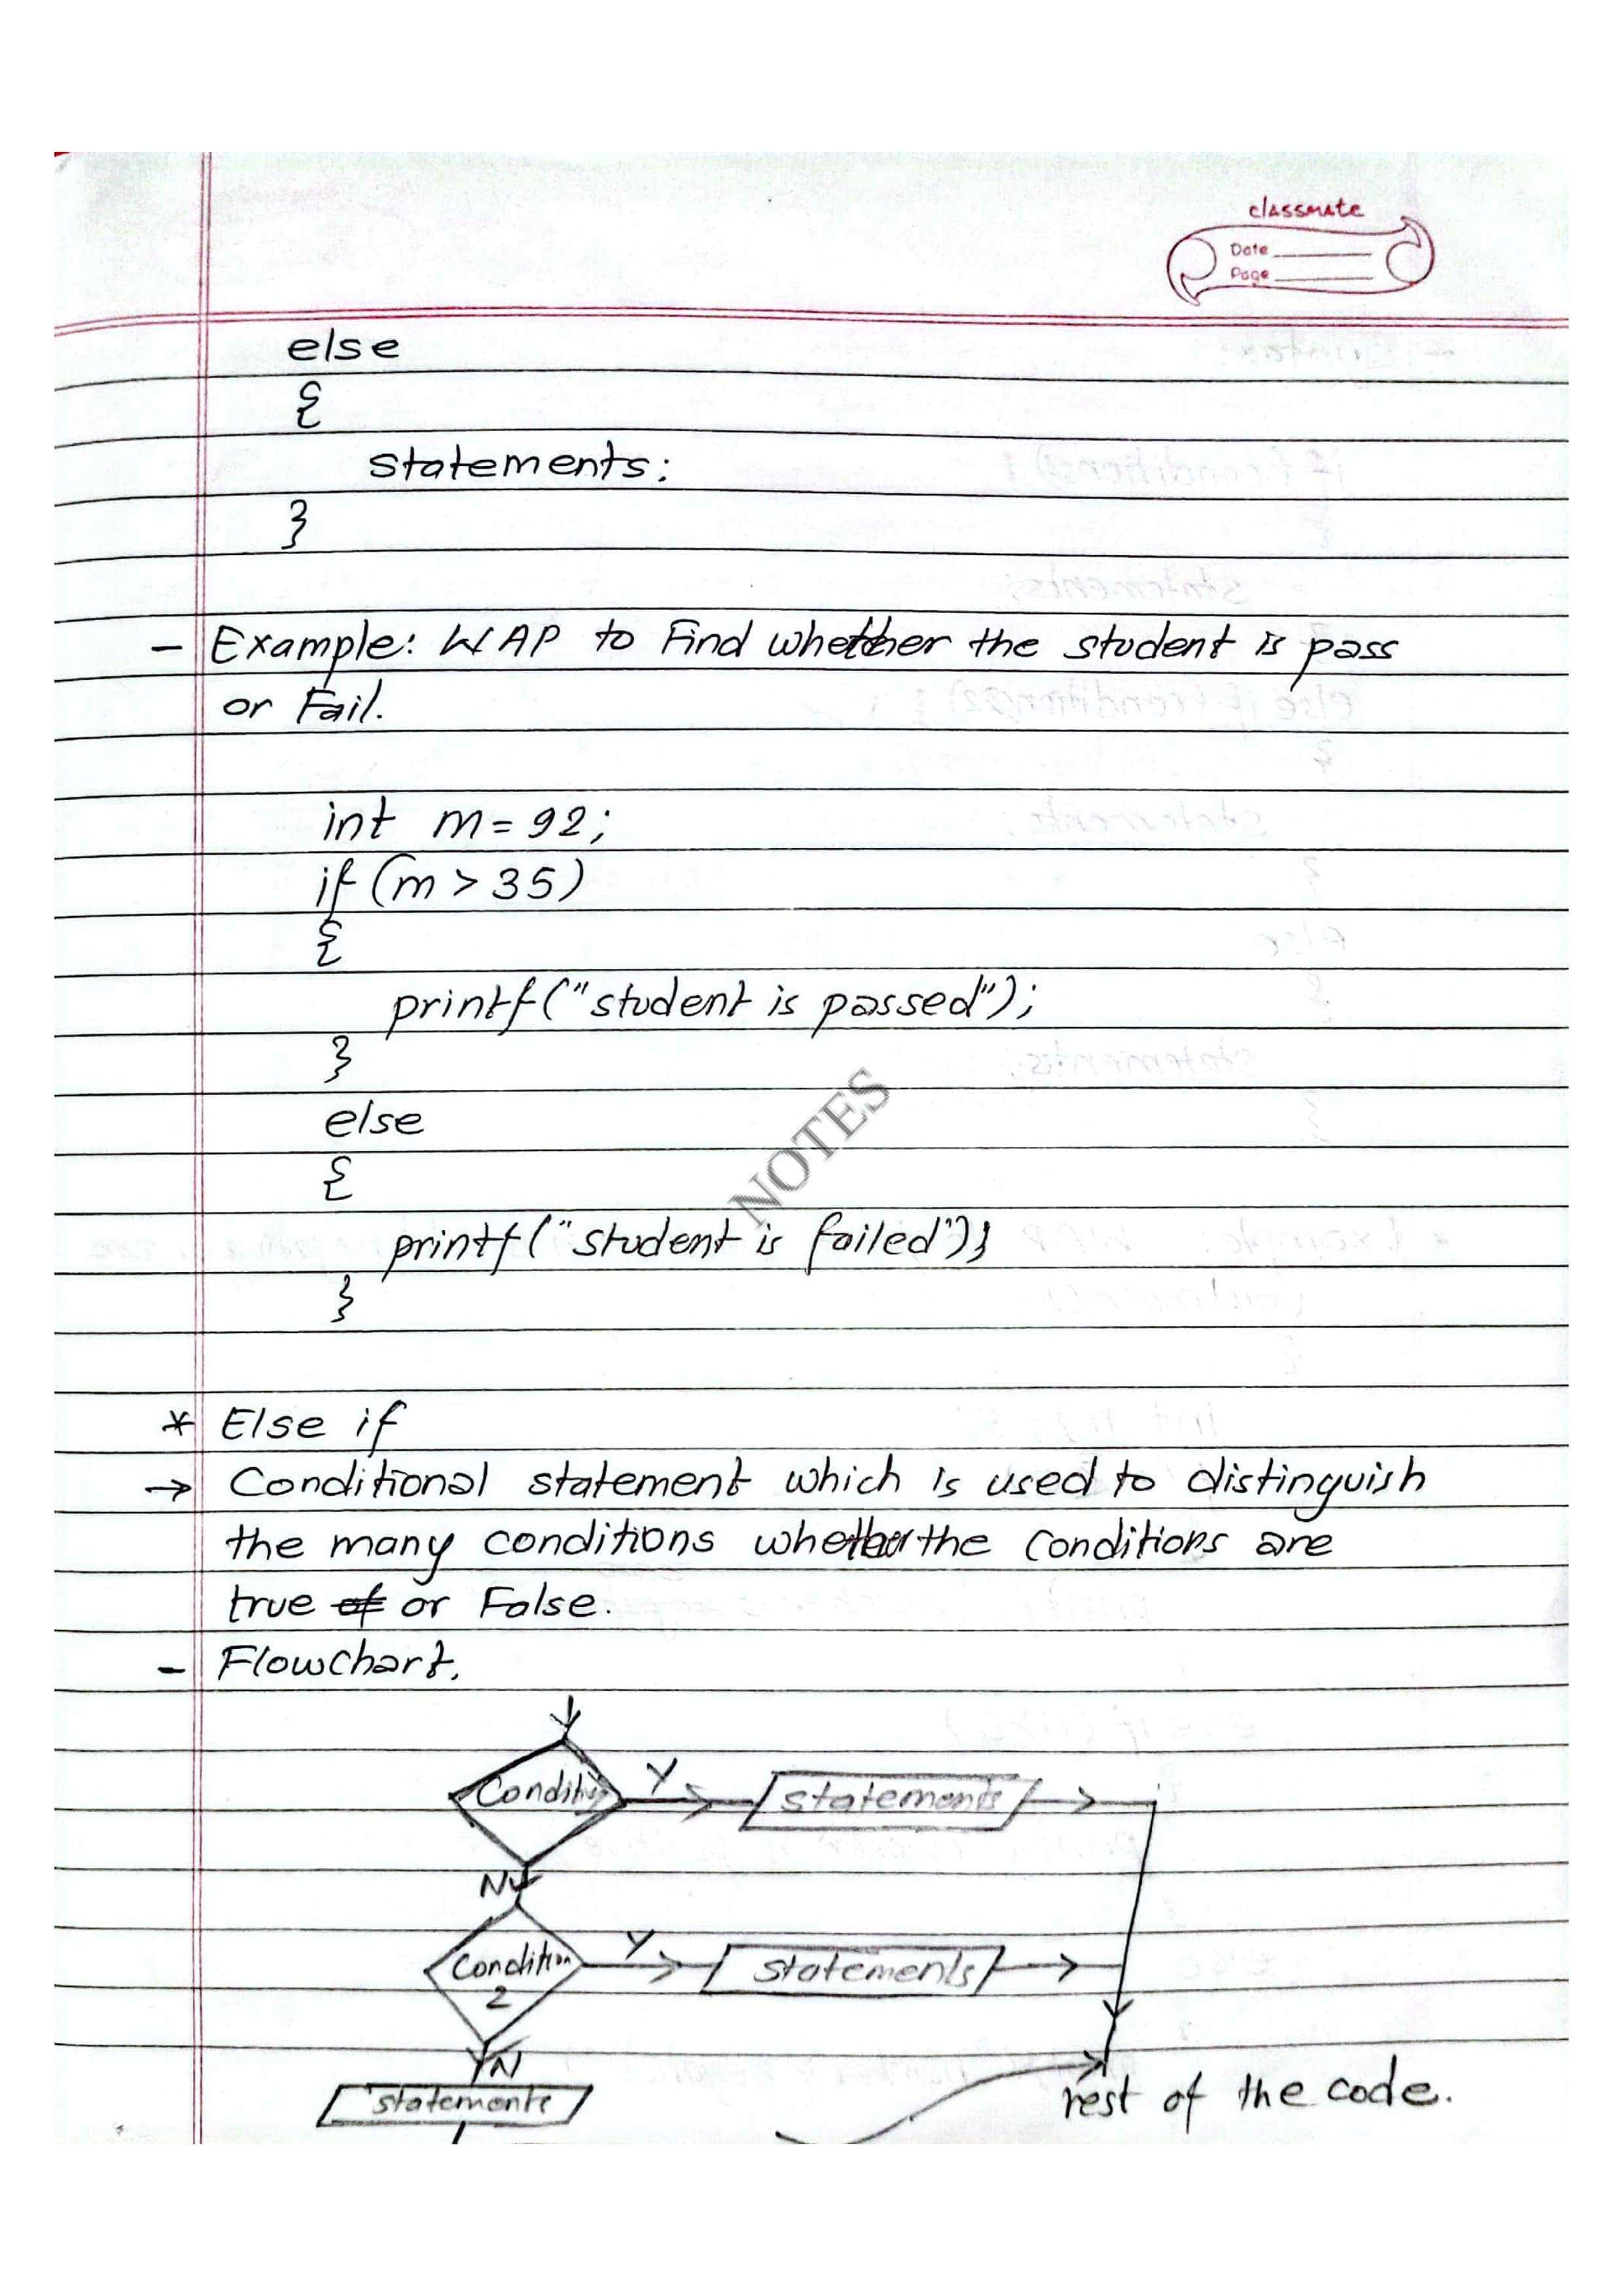 classmate
Date
Page
else
{
statements;
}
- Example: WAP to Find whether the student is pass
or Fail.
int m = 92;
if (m > 35)
{
printf("student is passed");
}
else
{
printf("student is failed");
}
NOTES
* Else if
→ Conditional statement which is used to distinguish
the many conditions whether the conditions are
true of or False.
- Flowchart.
Condition
Y
statements
N
Condition
2
Y
statements
N
statements
rest of the code.